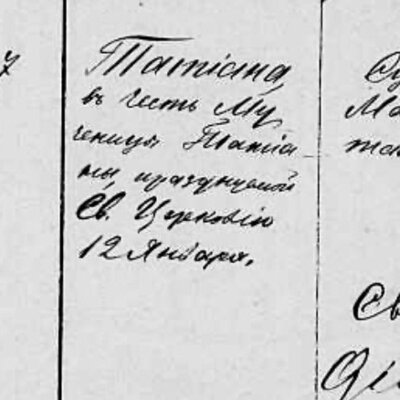 7
Татiана,
въ честь Му
ченицы Татiа
ны празднуемой
Св. Церковiю
12 Января.
Св